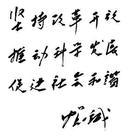 坚持改革开放
推动科学发展
促进社会和谐